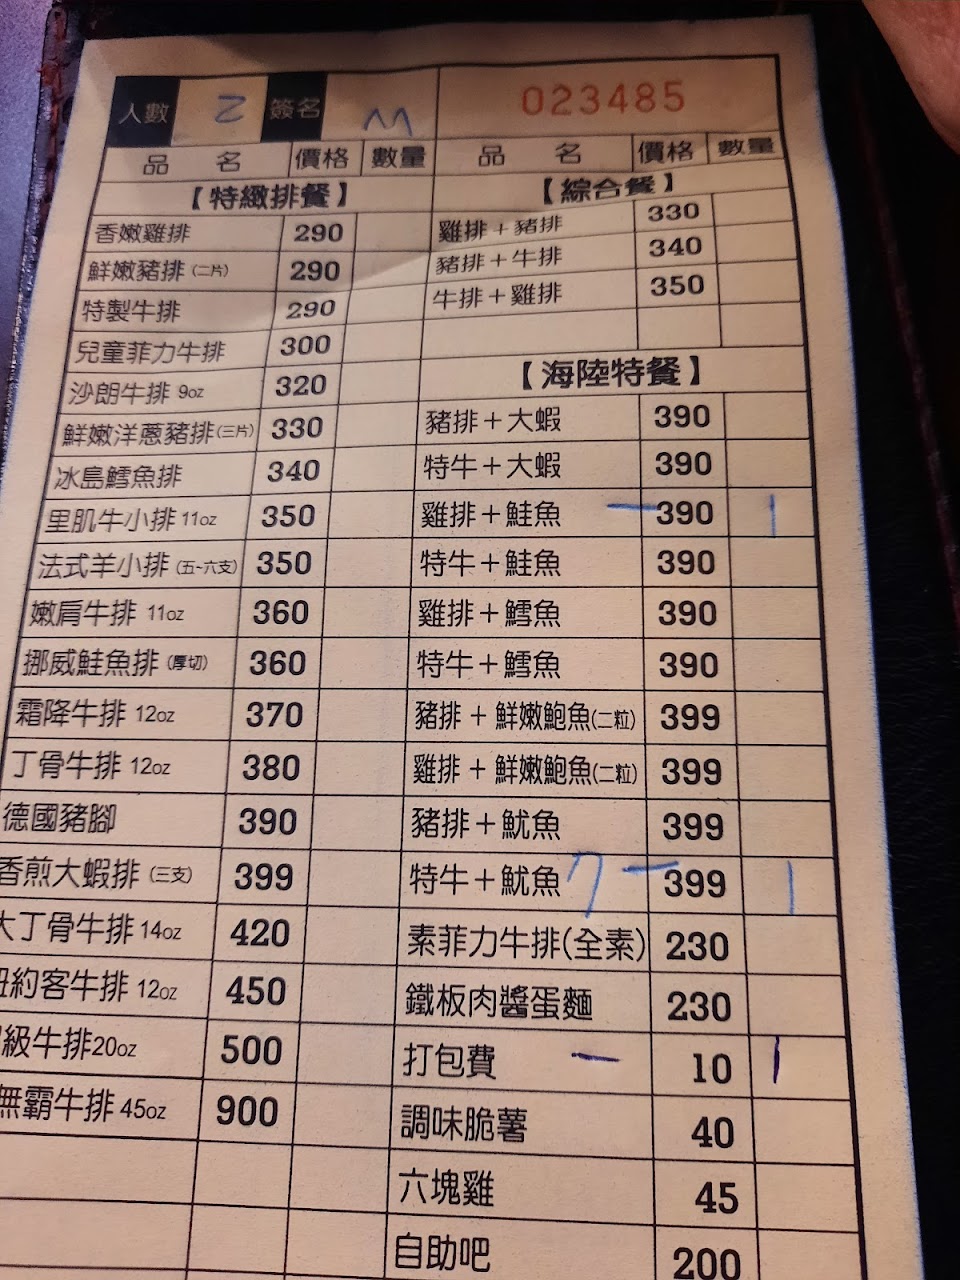 人數 2 簽名 M 023485
品 名 價格 數量 品 名 價格 數量
【特緻排餐】
香嫩雞排 290
鮮嫩豬排(二片) 290
特製牛排 290
兒童菲力牛排 300
沙朗牛排 9oz 320
鮮嫩洋蔥豬排(三片) 330
冰島鱈魚排 340
里肌牛小排 11oz 350
法式羊小排(五-六支) 350
嫩肩牛排 11oz 360
挪威鮭魚排(厚切) 360
霜降牛排 12oz 370
丁骨牛排 12oz 380
德國豬腳 390
香煎大蝦排(三支) 399
大丁骨牛排 14oz 420
紐約客牛排 12oz 450
級牛排20oz 500
無霸牛排 45oz 900
【綜合餐】
雞排+豬排 330
豬排+牛排 340
牛排+雞排 350
【海陸特餐】
豬排+大蝦 390
特牛+大蝦 390
雞排+鮭魚 一 390 1
特牛+鮭魚 390
雞排+鱈魚 390
特牛+鱈魚 390
豬排+鮮嫩鮑魚(二粒) 399
雞排+鮮嫩鮑魚(二粒) 399
豬排+魷魚 399
特牛+魷魚 7 一 399 1
素菲力牛排(全素) 230
鐵板肉醬蛋麵 230
打包費 一 10 1
調味脆薯 40
六塊雞 45
自助吧 200